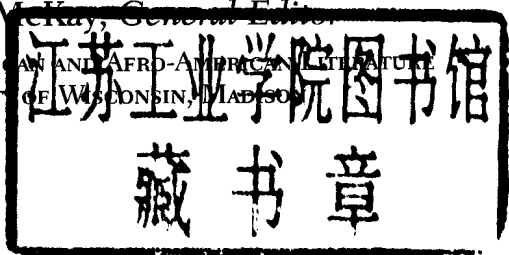 McKay, General Editor
CAN AND AFRO-AMERICAN LITERATURE
OF WISCONSIN, MADISON
江苏工业学院图书馆
藏书章